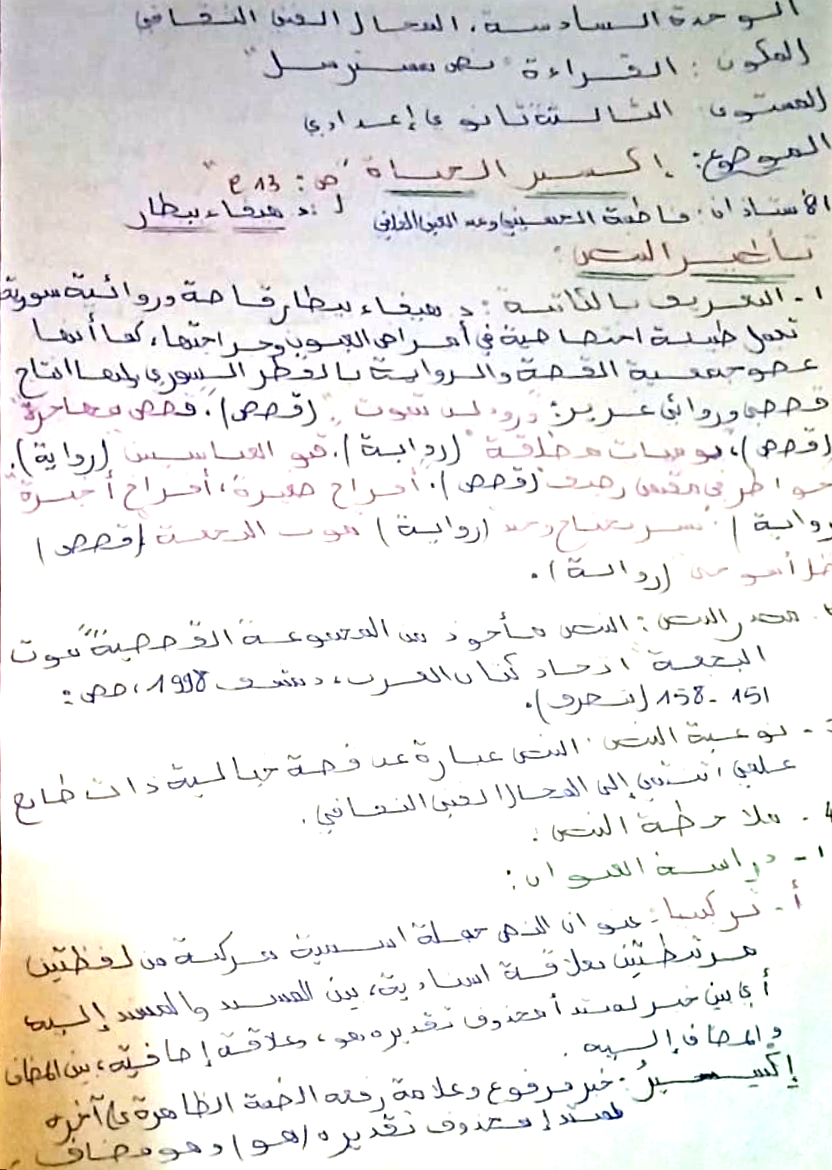 الوحدة السادسة، المجال الفني الثقافي
المكون: القراءة "نص مسترسل"
المستوى: الثالثة ثانوي إعدادي
الموضوع: إكسير الحياة "ص: 213"
الأستاذان: فاطمة الحسيني وعبد الغني
ل: د هيفاء بيطار
تأطير النص:
1- التعريف بالكاتبة: د هيفاء بيطار قاصة وروائية سورية
تعمل طبيبة اختصاصية في أمراض العيون وجراحتها، كما أنها
عضو جمعية القصة والرواية بالقطر السوري ولها إنتاج
قصصي وروائي غزير: "ورود لن تموت" (قصص). قصص مهاجرة"
(قصص)، "يوميات مطلقة" (رواية). قبو العباسيين (رواية).
خواطر في مقهى رصيف" (قصص). أفراح صغيرة، أفراح أخيرة"
رواية) نسر بجناح وحيد (رواية) موت البجعة (قصص)
(رواية).
مصدر النص: النص مأخوذ من المجموعة القصصية "موت
البجعة" اتحاد كتاب العرب، دمشق 1998، صص:
151 - 158 (بتصرف).
- نوعية النص: النص عبارة عن قصة خيالية ذات طابع
علمي، تنتمي إلى المجال الفني الثقافي.
4. ملاحظة النص:
1- دراسة العنوان:
أ- تركيبيا: عنوان النص جملة اسمية مركبة من لفظتين
مرتبطتين بعلاقة اسنادية، بين المسند والمسند إليه
أي بين خبر لمبتدأ محذوف تقديره هو، وعلاقة إضافية، بين المضاف
والمضاف إليه.
إكسيرُ: خبر مرفوع وعلامة رفعه الضمة الظاهرة على آخره
لمبتدإ محذوف تقديره (هو) وهو مضاف.